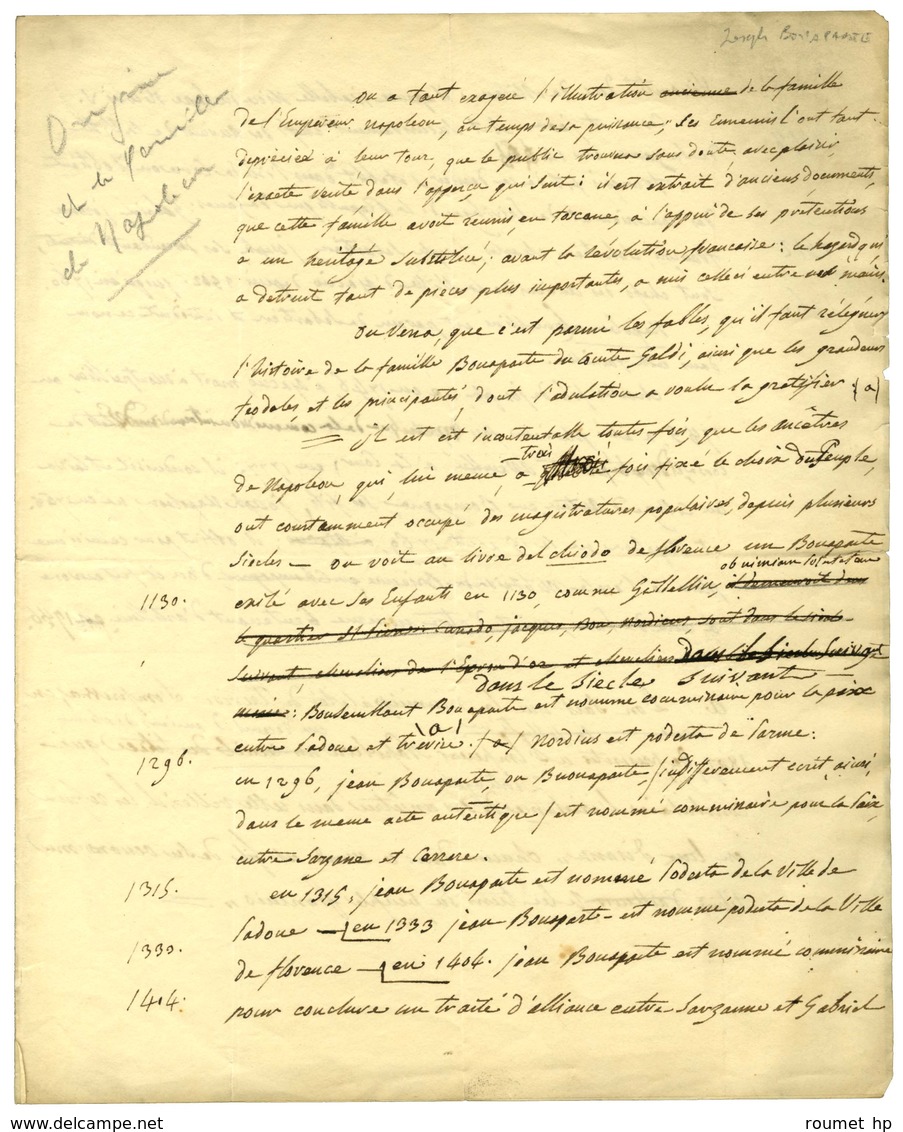 Joseph BONAPARTE
Origine
de la famille
de Napoleon
On a tant exageré l'illustration ancienne de la famille
de l'Empereur napoleon, au temps de sa puissance, ses Ennemis l'ont tant
depréciée à leur tour, que le public trouvera sans doute avec plaisir,
l'exacte verité dans l'apperçu qui suit: il est extrait d'anciens documents,
que cette famille avoit reunis, en toscane, à l'appui de ses prétentions
à un heritage substitué; avant la révolution francaise: le hazard qui
a detruit tant de pièces plus importantes, a mis celle ci entre nos mains.
On verra, que c'est parmi les fables, qu'il faut réléguer
l'histoire de la famille Bonaparte du Comte Galdi, ainsi que les grandeurs
feodales, et les principautés, dont l'adulation a voulu la gratifier (a)
Il est est incontestable toutes fois, que les ancêtres
de Napoleon, qui, lui meme, a trois fois fixé le choix du Peuple,
ont constamment occupé des magistratures populaires, depuis plusieurs
Siècles — on voit au livre del chiodo de florence un Bonaparte
1130. exilé avec ses Enfants en 1130, comme Gibellin,
le quartier St
Suivant, chevalier de l'Eperon d'or et chevaliers dans le siecle suivant
dans le Siecle suivant
: Bonsemblant Bonaparte est nommé commissaire pour la paix
entre Padoue et trevise. (a) Nordius est podesta de Parme:
1296. en 1296, jean Bonaparte, ou Buonaparte, (indifferement ecrit ainsi,
dans le meme acte autentique) est nommé commissaire pour la Paix,
entre Sarzane et Carrere.
1315. en 1315, jean Bonaparte est nommé Podesta de la Ville de
Padoue — en 1333 jean Bonaparte — est nommé podesta de la Ville
1333. de florence — en 1404. jean Bonaparte est nommé commissaire
1404. pour conclure un traité d'alliance entre Sarzanne et Gabriel
roumet hp